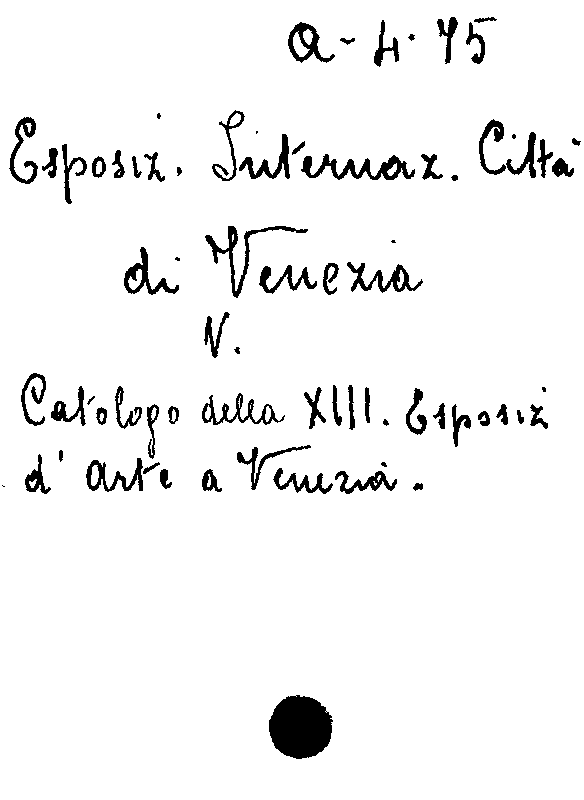 a-4.75
Esposiz. Internaz. Città
di Venezia
V.
Catologo della XIII. Esposiz
d'Arte a Venezia.